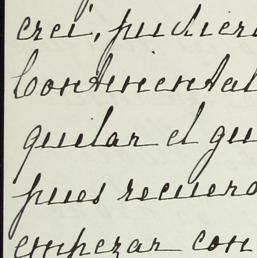 creí, pudiera
Continental
quilar el gu
pues recuero
empezar con